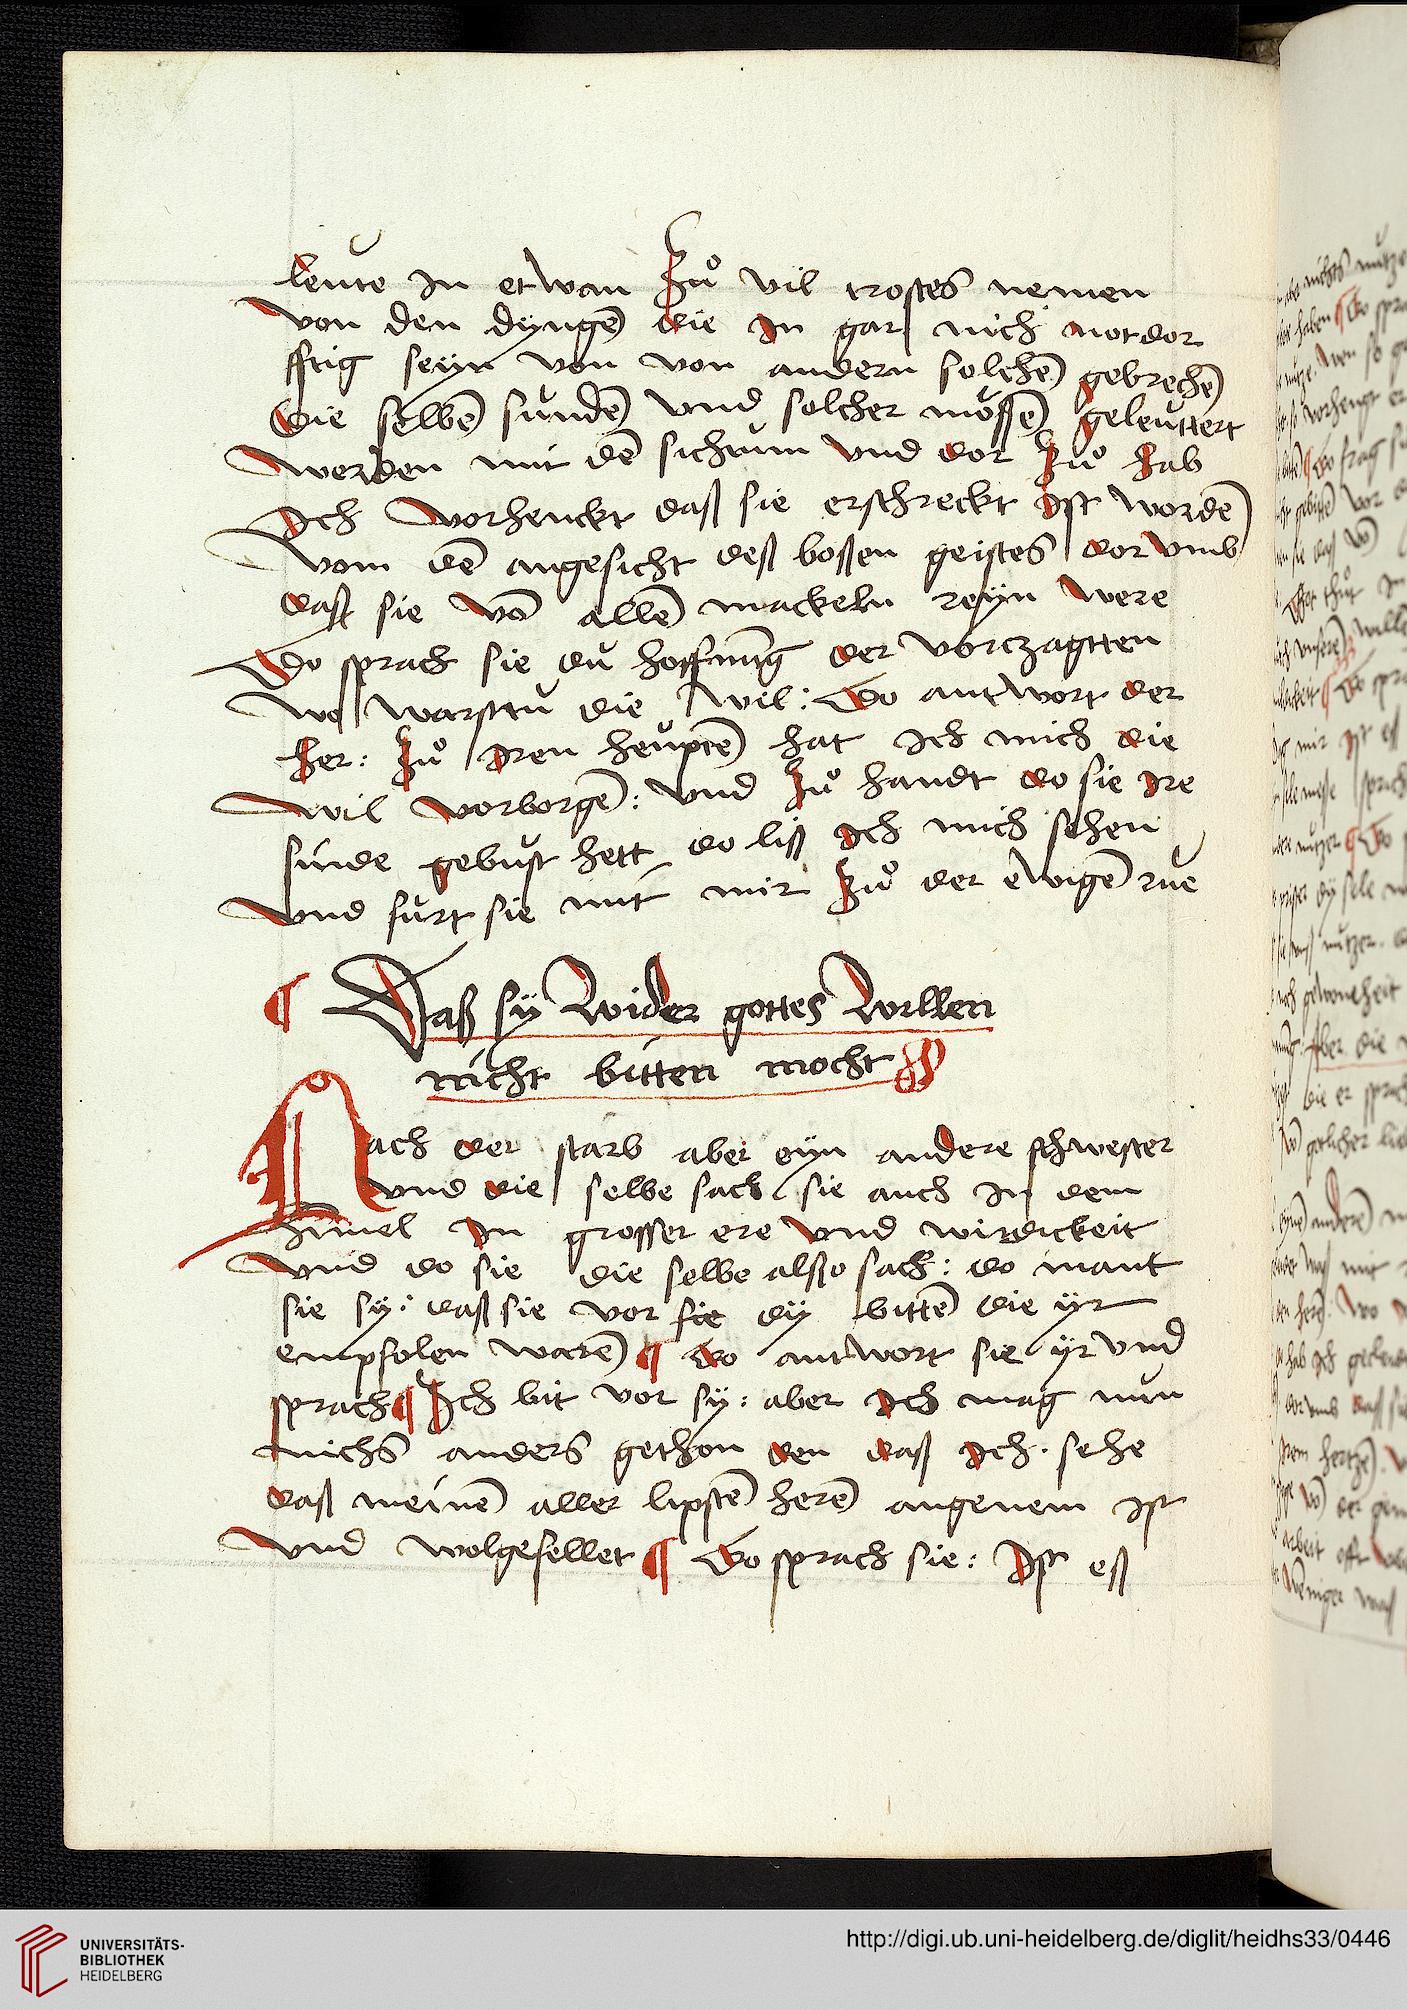 leute in etwan zuͦ vil trostes nemen
von den dyngē die in gar nich notdor
fftig seyn von von andern solchē gebrechē
Die selbē sundē vnd solcher mossē geleuttert
werden mit dē sichtum vnd dor zuͦ hab
Ich vorhenckt daß sie erschreckt ist wordē
vom dē angesicht deß bossen geistes dor vmb
daß sie vō allē mackeln reyn were
Do sprach sie du hoffnūg der vorczagtten
wo warsttu die wil: Do antwort der
her: zuͦ iren heuptē hat ich mich die
wil vorborgē: vnd zuͦ handt do sie ire
sunde gebust hett do liß ich mich sehen
vnd furt sie mit mir zuͦ der ewigē rue
¶ Daß sÿ wider gottes willen
nicht bitten mocht
Nach der starb aber eyn andere schwester
vnd die selbe sach sie auch in dem
himel in grosser ere vnd wirdickeit
vnd do sie die selbe alßo sach: do mant
sie sÿ: daß sie vor sie dÿ bittē die ÿr
empfolen warē ¶ do antwort sie ÿr vnd
sprach ¶ Ich bit vor sÿ: aber ich mag nun
nichs anders gethon den daß ich sehe
daß meinē aller lipstē herē angenem ist
vnd wolgefellet ¶ Do sprach sie: Ist eß
UNIVERSITÄTS-
BIBLIOTHEK
HEIDELBERG
http://digi.ub.uni-heidelberg.de/diglit/heidhs33/0446